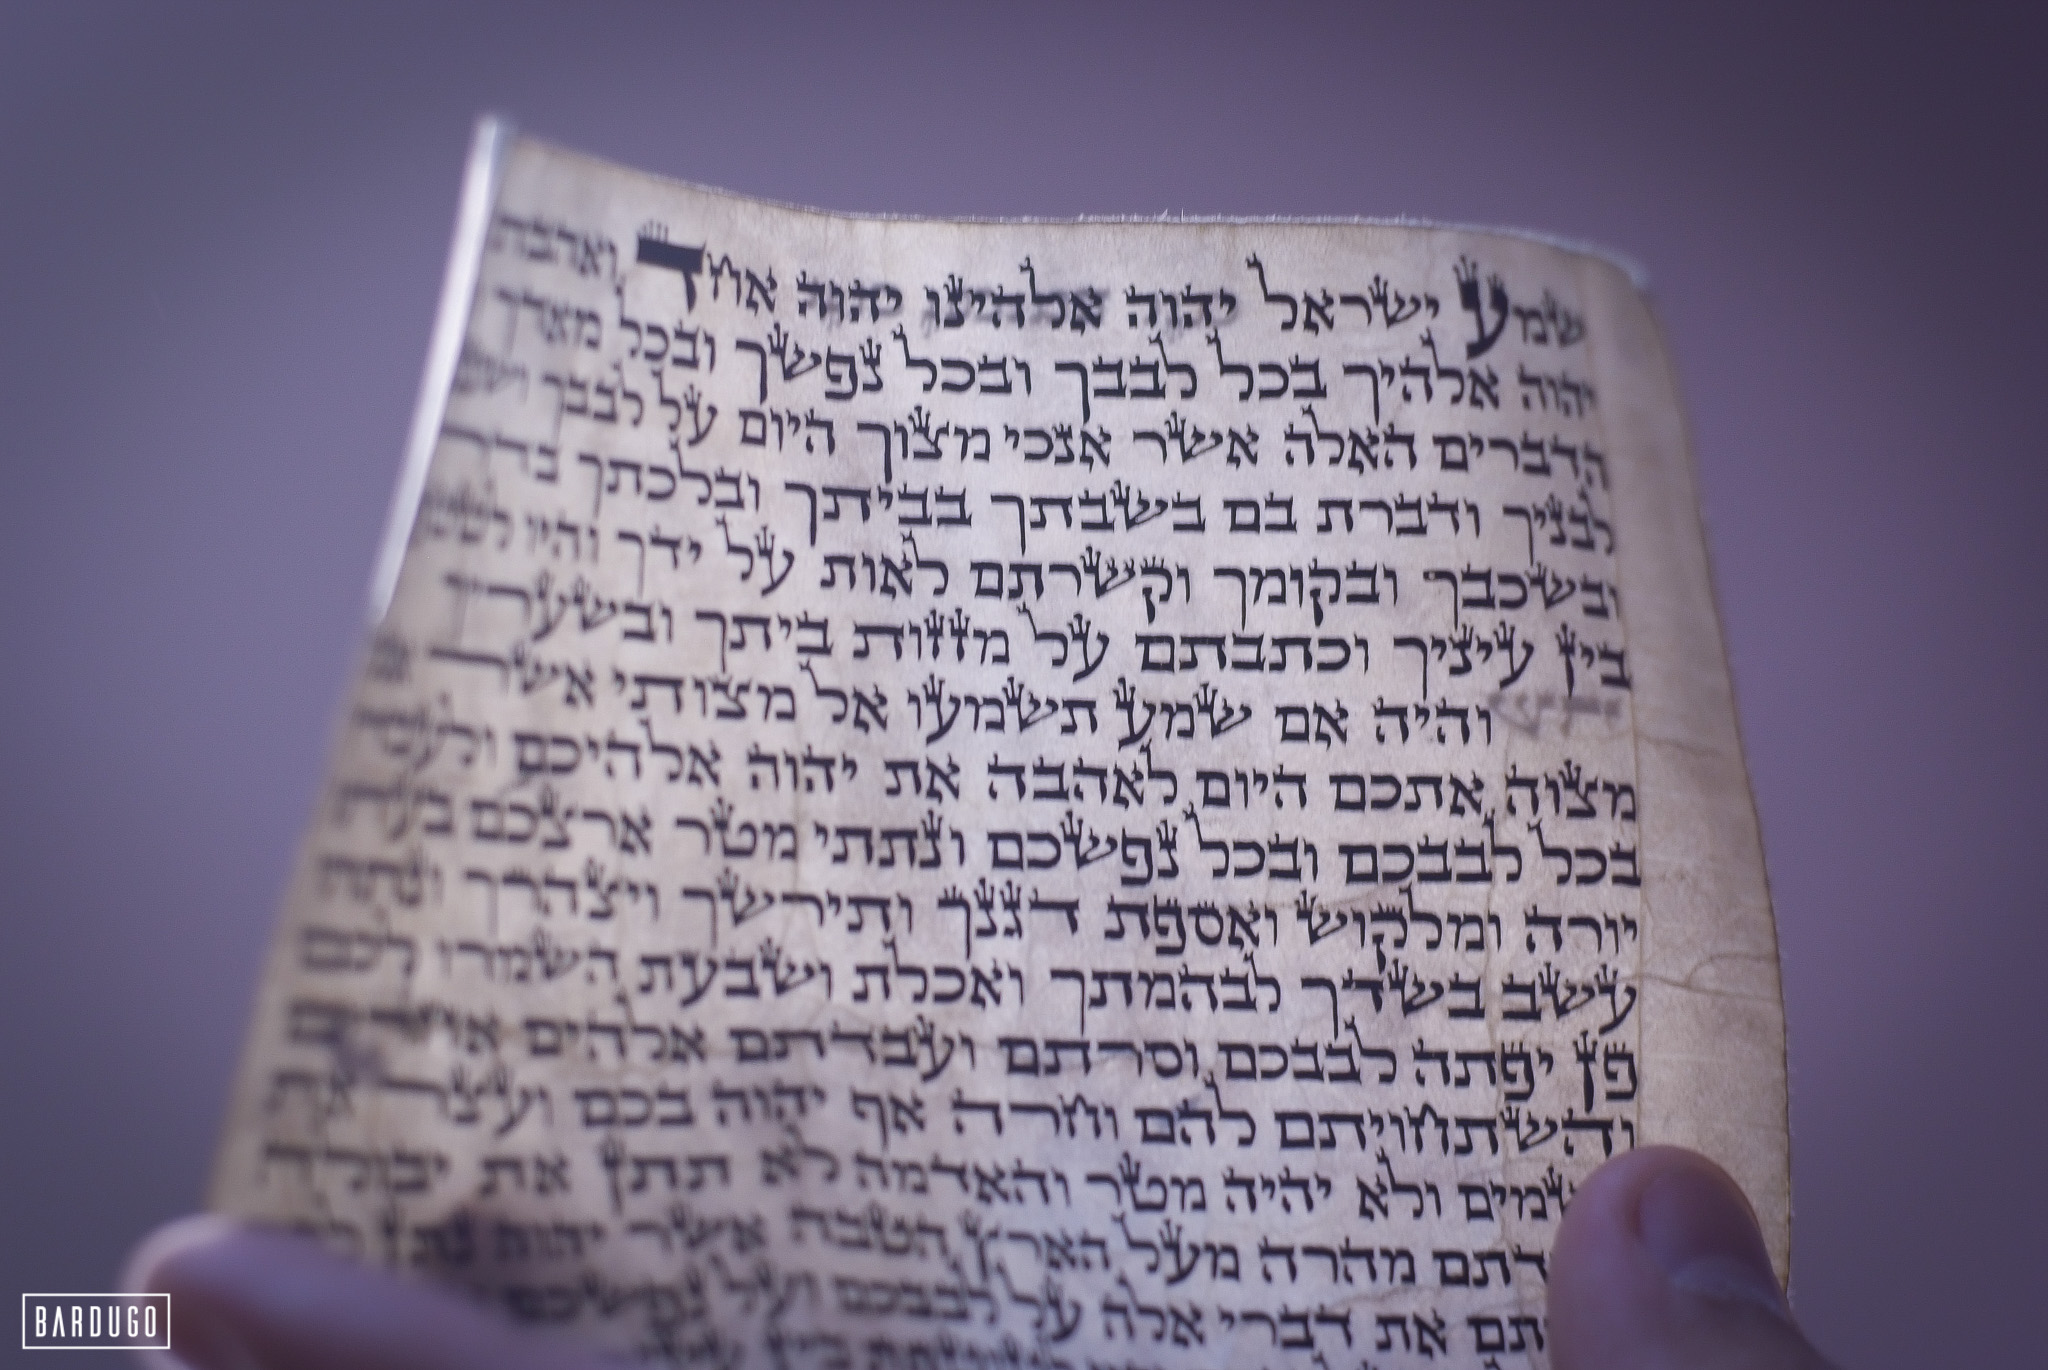 שמע ישראל יהוה אלהינו יהוה אחד ואהבת
יהוה אלהיך בכל לבבך ובכל נפשך ובכל מאדך
הדברים האלה אשר אנכי מצוך היום על לבבך
לבניך ודברת בם בשבתך בביתך ובלכתך בדרך
ובשכבך ובקומך וקשרתם לאות על ידך והיו
בין עיניך וכתבתם על מזזות ביתך ובשעריך
והיה אם שמע תשמעו אל מצותי אשר
מצוה אתכם היום לאהבה את יהוה אלהיכם
בכל לבבכם ובכל נפשכם ונתתי מטר ארצכם בעתו
יורה ומלקוש ואספת דגנך ותירשך ויצהרך ונתתי
עשב בשדך לבהמתך ואכלת ושבעת השמרו לכם
פן יפתה לבבכם וסרתם ועבדתם אלהים אחרים
והשתחויתם להם וחרה אף יהוה בכם ועצר את
שמים ולא יהיה מטר והאדמה לא תתן את יבולה
דתם מהרה מעל הארץ הטבה אשר יהוה נתן
תם את דברי אלה על לבבכם ועל נפשכם
BARDUGO